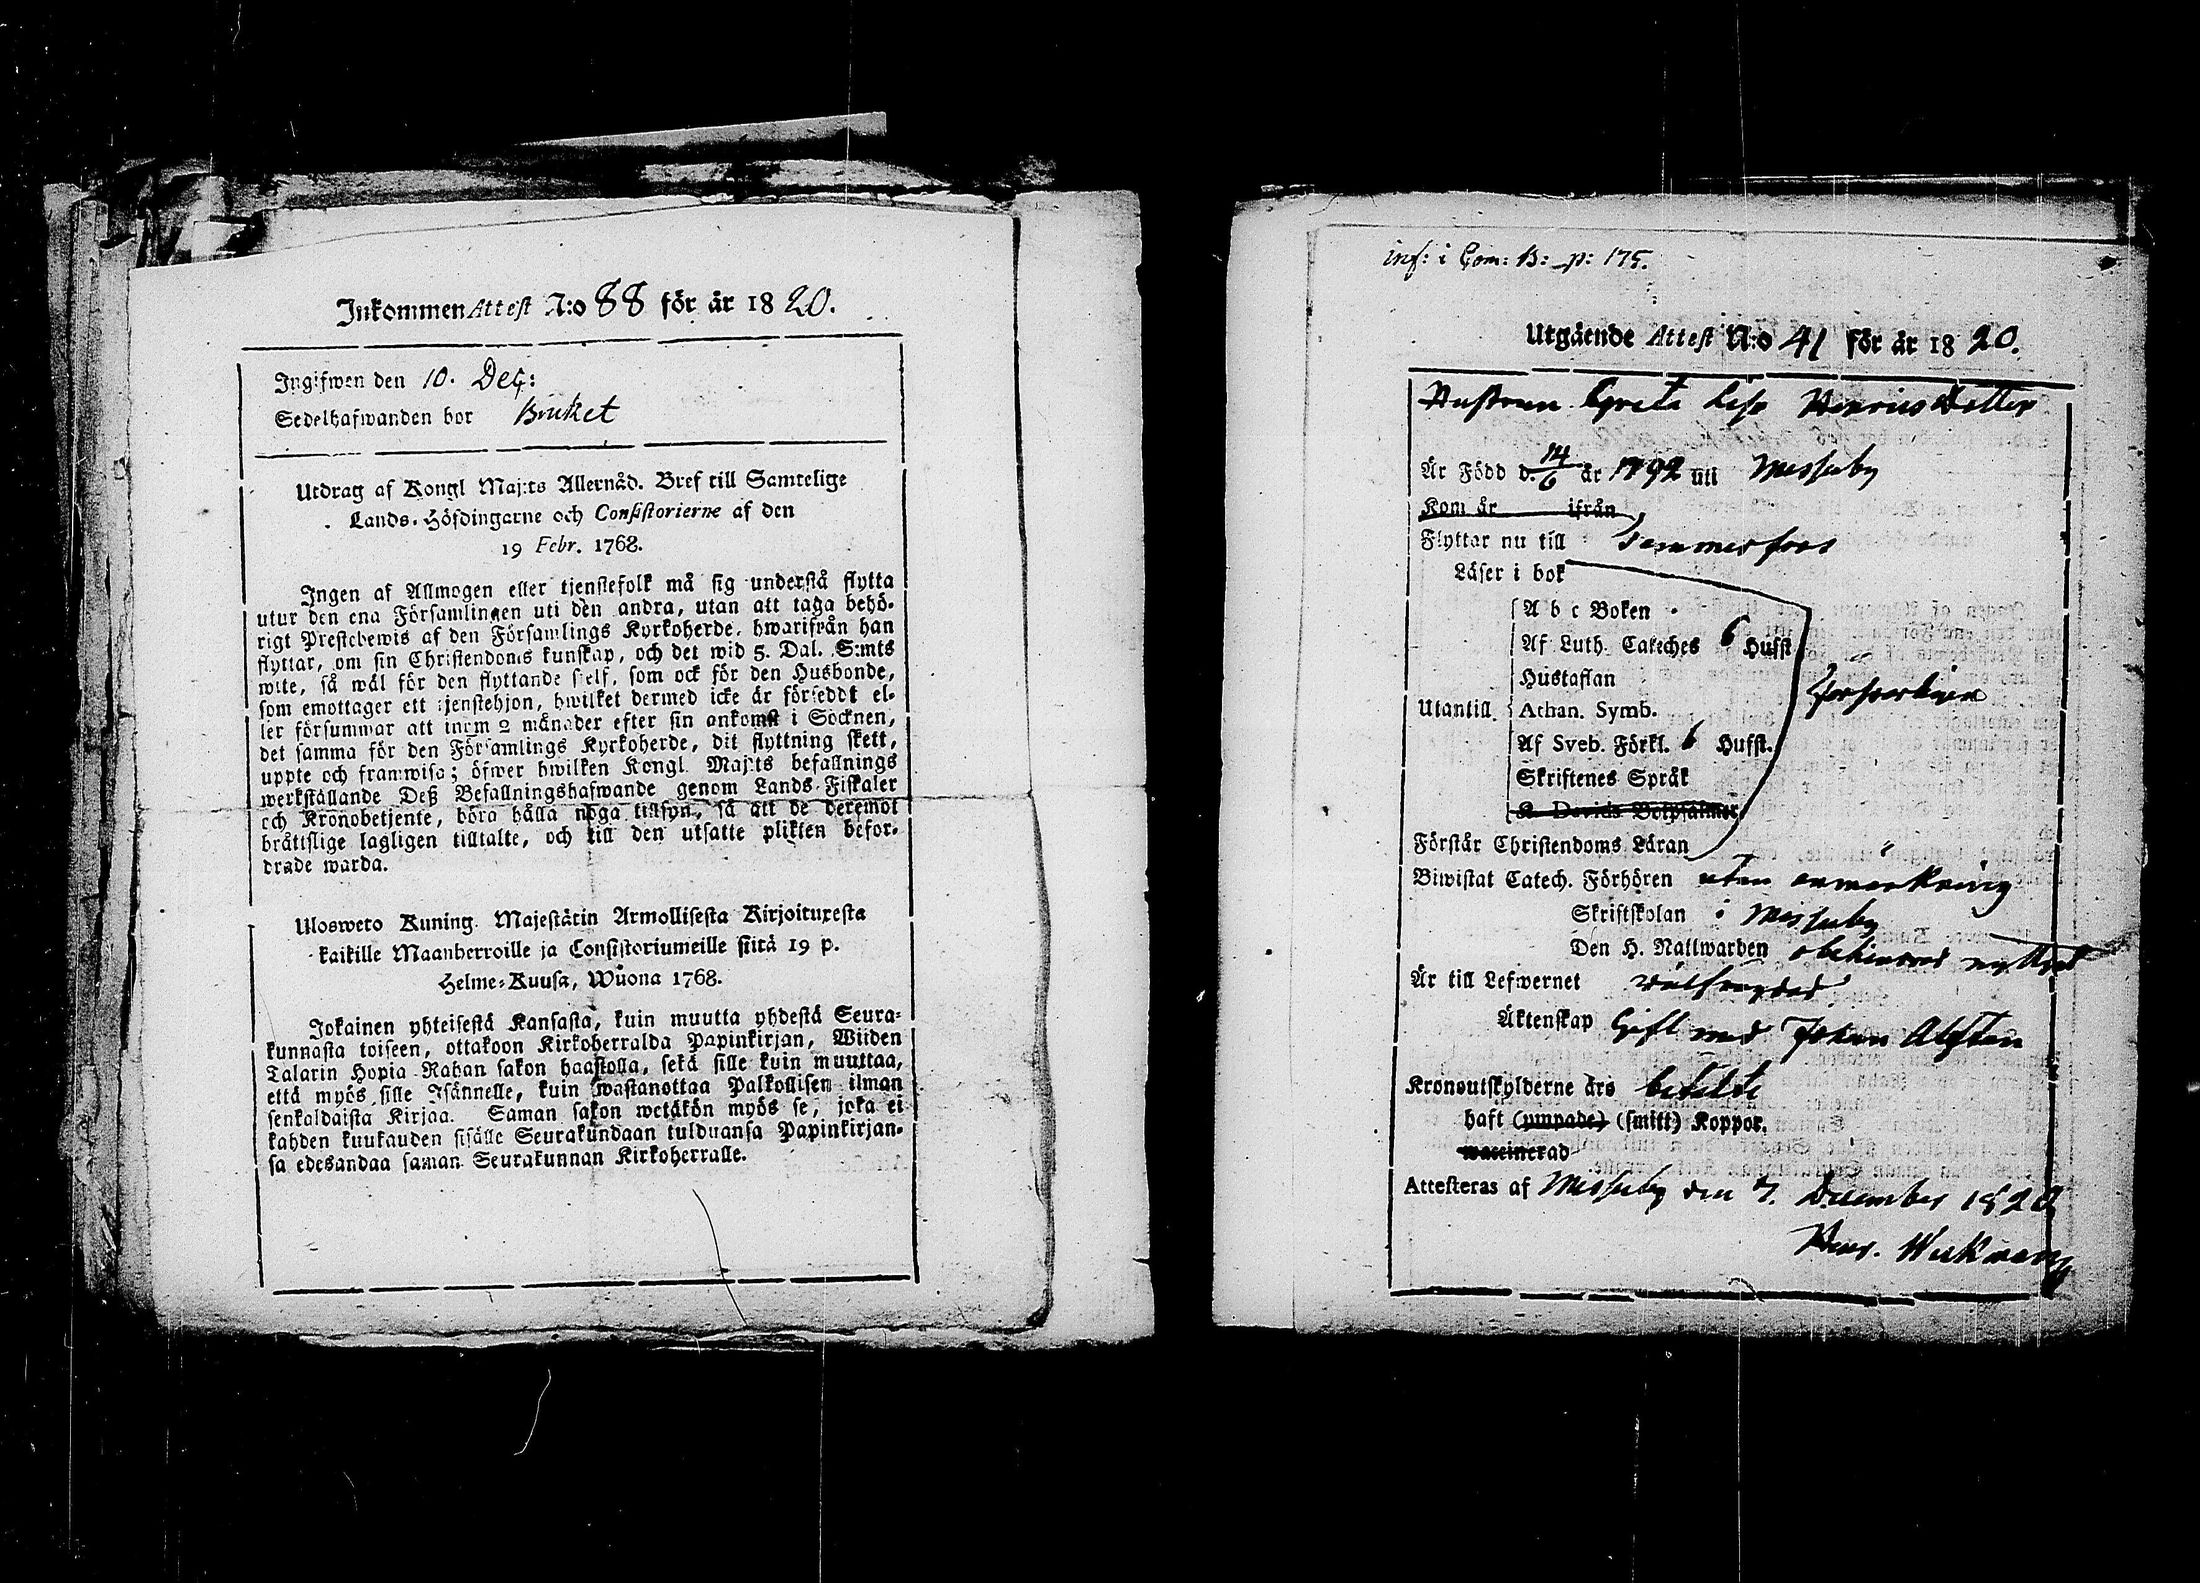 Inkommen Attest N:o 88 för år 1820.
Ingifwen den 10. Dec:
Sedelhafwanden bor Bruket
Utdrag af Kongl Maj:ts Allernåd. Bref till Samtelige
Lands-Höfdingarne och Consistorierne af den
19 Febr. 1768.
Ingen af Allmogen eller tjenstefolk må sig understå flytta
utur den ena Församlingen uti den andra, utan att taga behö-
rigt Prestebewis af den Församlings Kyrkoherde, hwarifrån han
flyttar, om sin Christendoms kunskap, och det wid 5. Dal. S:mts
wite, så wäl för den flyttande sjelf, som ock för den Husbonde,
som emottager ett tjenstehjon, hwilket dermed icke är förseddt el-
ler försummar att inom 2 månader efter sin ankomst i Socknen,
det samma för den Församlings Kyrkoherde, dit flyttning skett,
uppte och framwisa; öfwer hwilken Kongl. Maj:ts befallnings
werkställande Deß Befallningshafwande genom Lands-Fiskaler
och Kronobetjente, böra hålla noga tillsyn, så att de deremot
bråttslige lagligen tilltalte, och till den utsatte plikten befor-
drade warda.
Ulosweto Kuning. Majestätin Armollisesta Kirjoituxesta
kaikille Maanherroille ja Consistoriumeille siitä 19 p.
Helme-Kuusa, Wuona 1768.
Jokainen yhteisestä Kansasta, kuin muutta yhdestä Seura-
kunnasta toiseen, ottakoon Kirkoherralda Papinkirjan, Wiiden
Talarin Hopia Rahan sakon haastolla, sekä sille kuin muuttaa,
että myös sille Isännelle, kuin wastanottaa Palkollisen ilman
senkaldaista Kirjaa. Saman sakon wetäkön myös se, joka ei
kahden kuukauden sisälle Seurakundaan tulduansa Papinkirjan-
sa edesandaa saman Seurakunnan Kirkoherralle.
inf: i Com: B: p: 175.
Utgående Attest N:o 41 för år 1820.
Hustrun Greta Lisa Henrics Dotter
Är Född d. 14/6 år 1792 uti Messuby
Kom år ifrån
Flyttar nu till Tammerfors
Läser i bok
A b c Boken
Af Luth. Cateches 6 Hufst
Hustaflan
Utantill Athan. Symb.
Af Sveb. Förkl. 6 Hufst.
Skriftenes Språk
K. Davids Botpsalmer
Förstår Christendoms Läran
försvarligen
Biwistat Catech. Förhören utan anmärkning
Skriftskolan i Messuby
Den H. Nattwarden obehindrad nyttjad
Är till Lefwernet wälfrägdad
Äktenskap Gift med Johan Alfsten
Kronoutskylderne äro betalde
haft (ympade) (smitt) Koppor.
waccinerad
Attesteras af Messuby den 7. December 1820